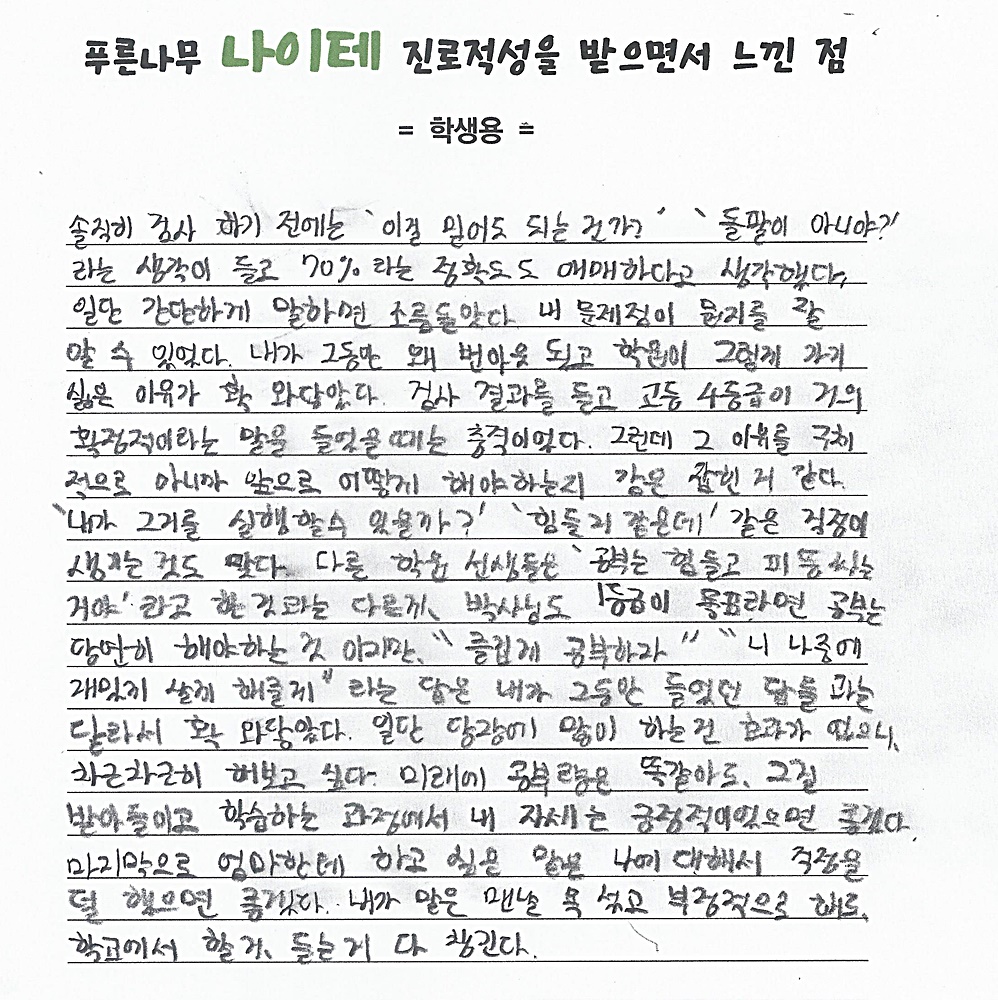 푸른나무 나이테 진로적성을 받으면서 느낀 점
= 학생용 =
솔직히 검사 하기 전에는 '이걸 믿어도 되는 건가?' '돌팔이 아니야?'
라는 생각이 들고 70% 라는 정확도도 애매하다고 생각했다.
일단 간단하게 말하면 소름돋았다. 내 문제점이 뭔지를 잘
알 수 있었다. 내가 그동안 왜 번아웃 되고 학원이 그렇게 가기
싫은 이유가 확 와닿았다. 검사 결과를 듣고 고등 4등급이 거의
확정적이라는 말을 들었을때는 충격이었다. 그런데 그 이유를 구체
적으로 아니까 앞으로 어떻게 해야하는지 감은 잡힌 거 같다.
'내가 그거를 실행할수 있을까?' '힘들거 같은데' 같은 걱정이
생기는 것도 맞다. 다른 학원 선생들은 '공부는 힘들고 피 똥 싸는
거야' 라고 한것과는 다르게, 박사님도 1등급이 목표라면 공부는
당연히 해야하는 것 이지만, "즐겁게 공부하자" "니 나중에
재밌게 살게 해줄게" 라는 답은 내가 그동안 들었던 답들 과는
달라서 확 와닿았다. 일단 당장에 많이 하는건 효과가 없으니,
차근차근히 해보고 싶다. 미래에 공부량은 똑같아도, 그걸
받아들이고 학습하는 과정에서 내 자세는 긍정적이었으면 좋겠다.
마지막으로 엄마한테 하고 싶은 말은 나에 대해서 걱정을
덜 했으면 좋겠다. 내가 말은 맨날 욕 섞고 부정적으로 해도,
학교에서 할 거, 듣는거 다 챙긴다.